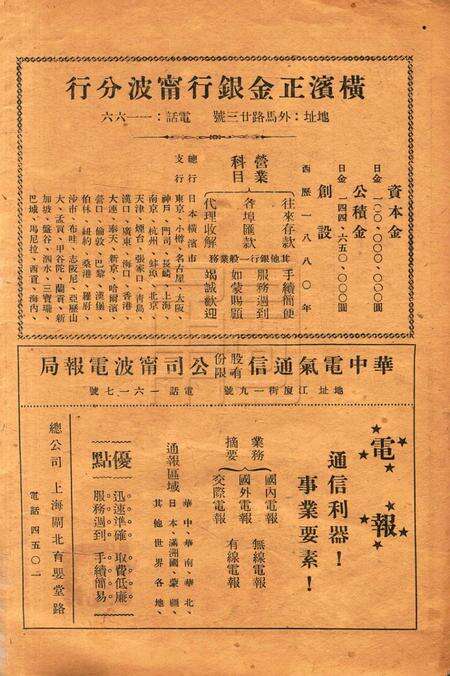 橫濱正金銀行甯波分行
地址:外馬路廿三號 電話:一一六六
資本金
日金 一〇〇、〇〇〇、〇〇〇圓
公積金
日金 一四四、六五〇、〇〇〇圓
創設
西歷一八八〇年
營業科目
往來存款
各埠匯款
代理收解
其他銀行一般業務
手續簡便
服務週到
如蒙賜顧
竭誠歡迎
總行 日本橫濱市
支行 東京・小樽・名古屋・大阪・
神戶・門司・長崎・上海・
南京・杭州・蚌埠・北京・
天津・煙台・張家口・青島・
漢口・廣東・海口・香港・
大連・奉天・新京・哈爾濱・
營口・倫敦・巴黎・漢堡・
伯林・紐約・桑港・羅府・
沙市・布哇・志阪尼・亞歷山
大・孟買・甲谷陀・蘭貢・新
加坡・盤谷・泗水・三寶瓏・
巴城・馬尼拉・西貢・海內・
華中電氣通信股份有限公司甯波電報局
地址 江廈街一九號 電話 一六一七號
電報
通信利器!
事業要素!
業務摘要
國內電報
國外電報
交際電報
無線電報
有線電報
通報區域
華中、華南、華北、
日本、滿洲國、蒙疆、
其他世界各地、
優點
迅速準確 取費低廉
服務週到 手續簡易
總公司 上海閘北育嬰堂路
電話 四五〇一